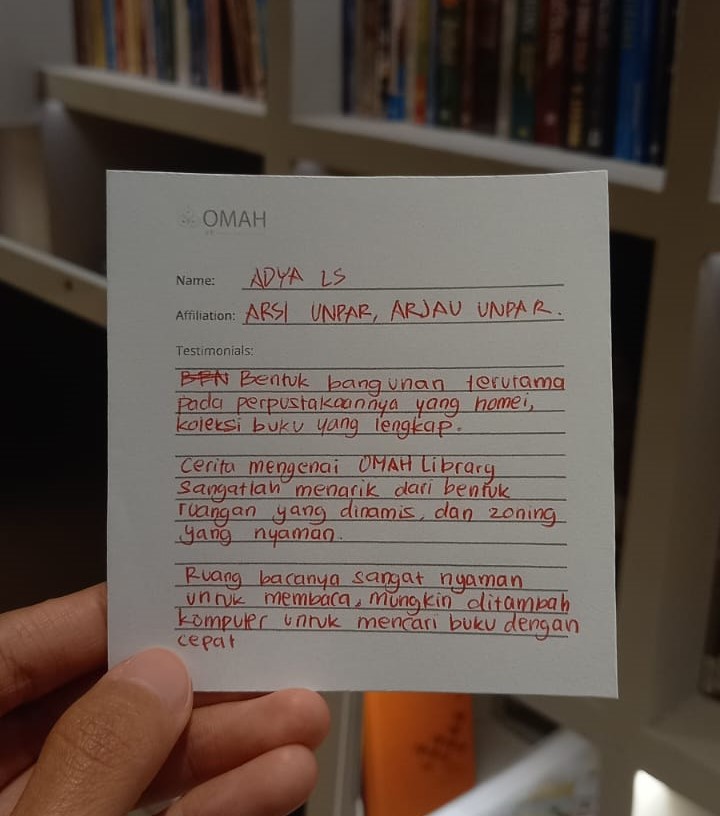 OMAH
Name: ADYA LS
Affiliation: ARSI UNPAR, ARJAU UNPAR.
Testimonials:
Bentuk bangunan terutama
pada perpustakaannya yang homei,
koleksi buku yang lengkap.
Cerita mengenai OMAH Library
Sangatlah menarik dari bentuk
ruangan yang dinamis, dan zoning
yang nyaman.
Ruang bacanya sangat nyaman
untuk membaca, mungkin ditambah
komputer untuk mencari buku dengan
cepat